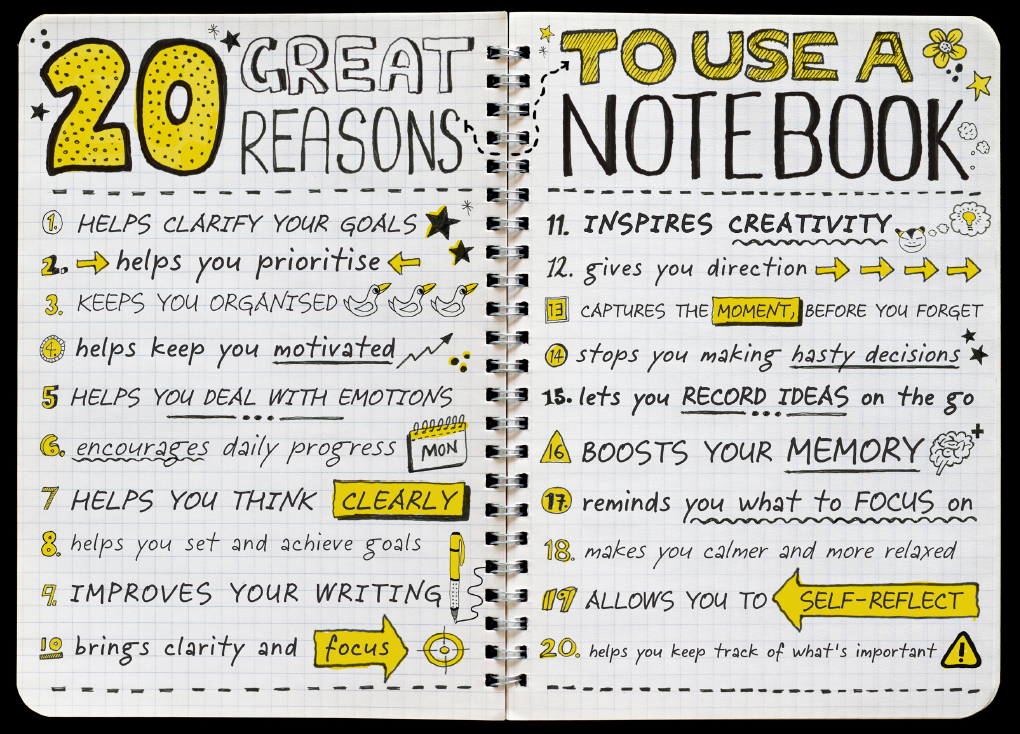 20 GREAT
REASONS
TO USE A
NOTEBOOK
1. HELPS CLARIFY YOUR GOALS
2. helps you prioritise
3. KEEPS YOU ORGANISED
4. helps keep you motivated
5 HELPS YOU DEAL WITH EMOTIONS
6. encourages daily progress MON
7 HELPS YOU THINK CLEARLY
8. helps you set and achieve goals
9. IMPROVES YOUR WRITING
10 brings clarity and focus
11. INSPIRES CREATIVITY
12. gives you direction
13 CAPTURES THE MOMENT, BEFORE YOU FORGET
14 stops you making hasty decisions
15. lets you RECORD IDEAS on the go
16 BOOSTS YOUR MEMORY
17. reminds you what to FOCUS on
18. makes you calmer and more relaxed
19 ALLOWS YOU TO SELF-REFLECT
20. helps you keep track of what's important